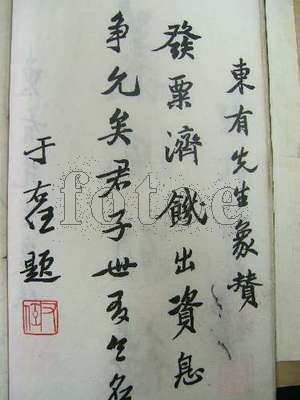 東有先生象贊
發粟濟饑出資息
争允矣君子世名
于右任題
右任
fotoe